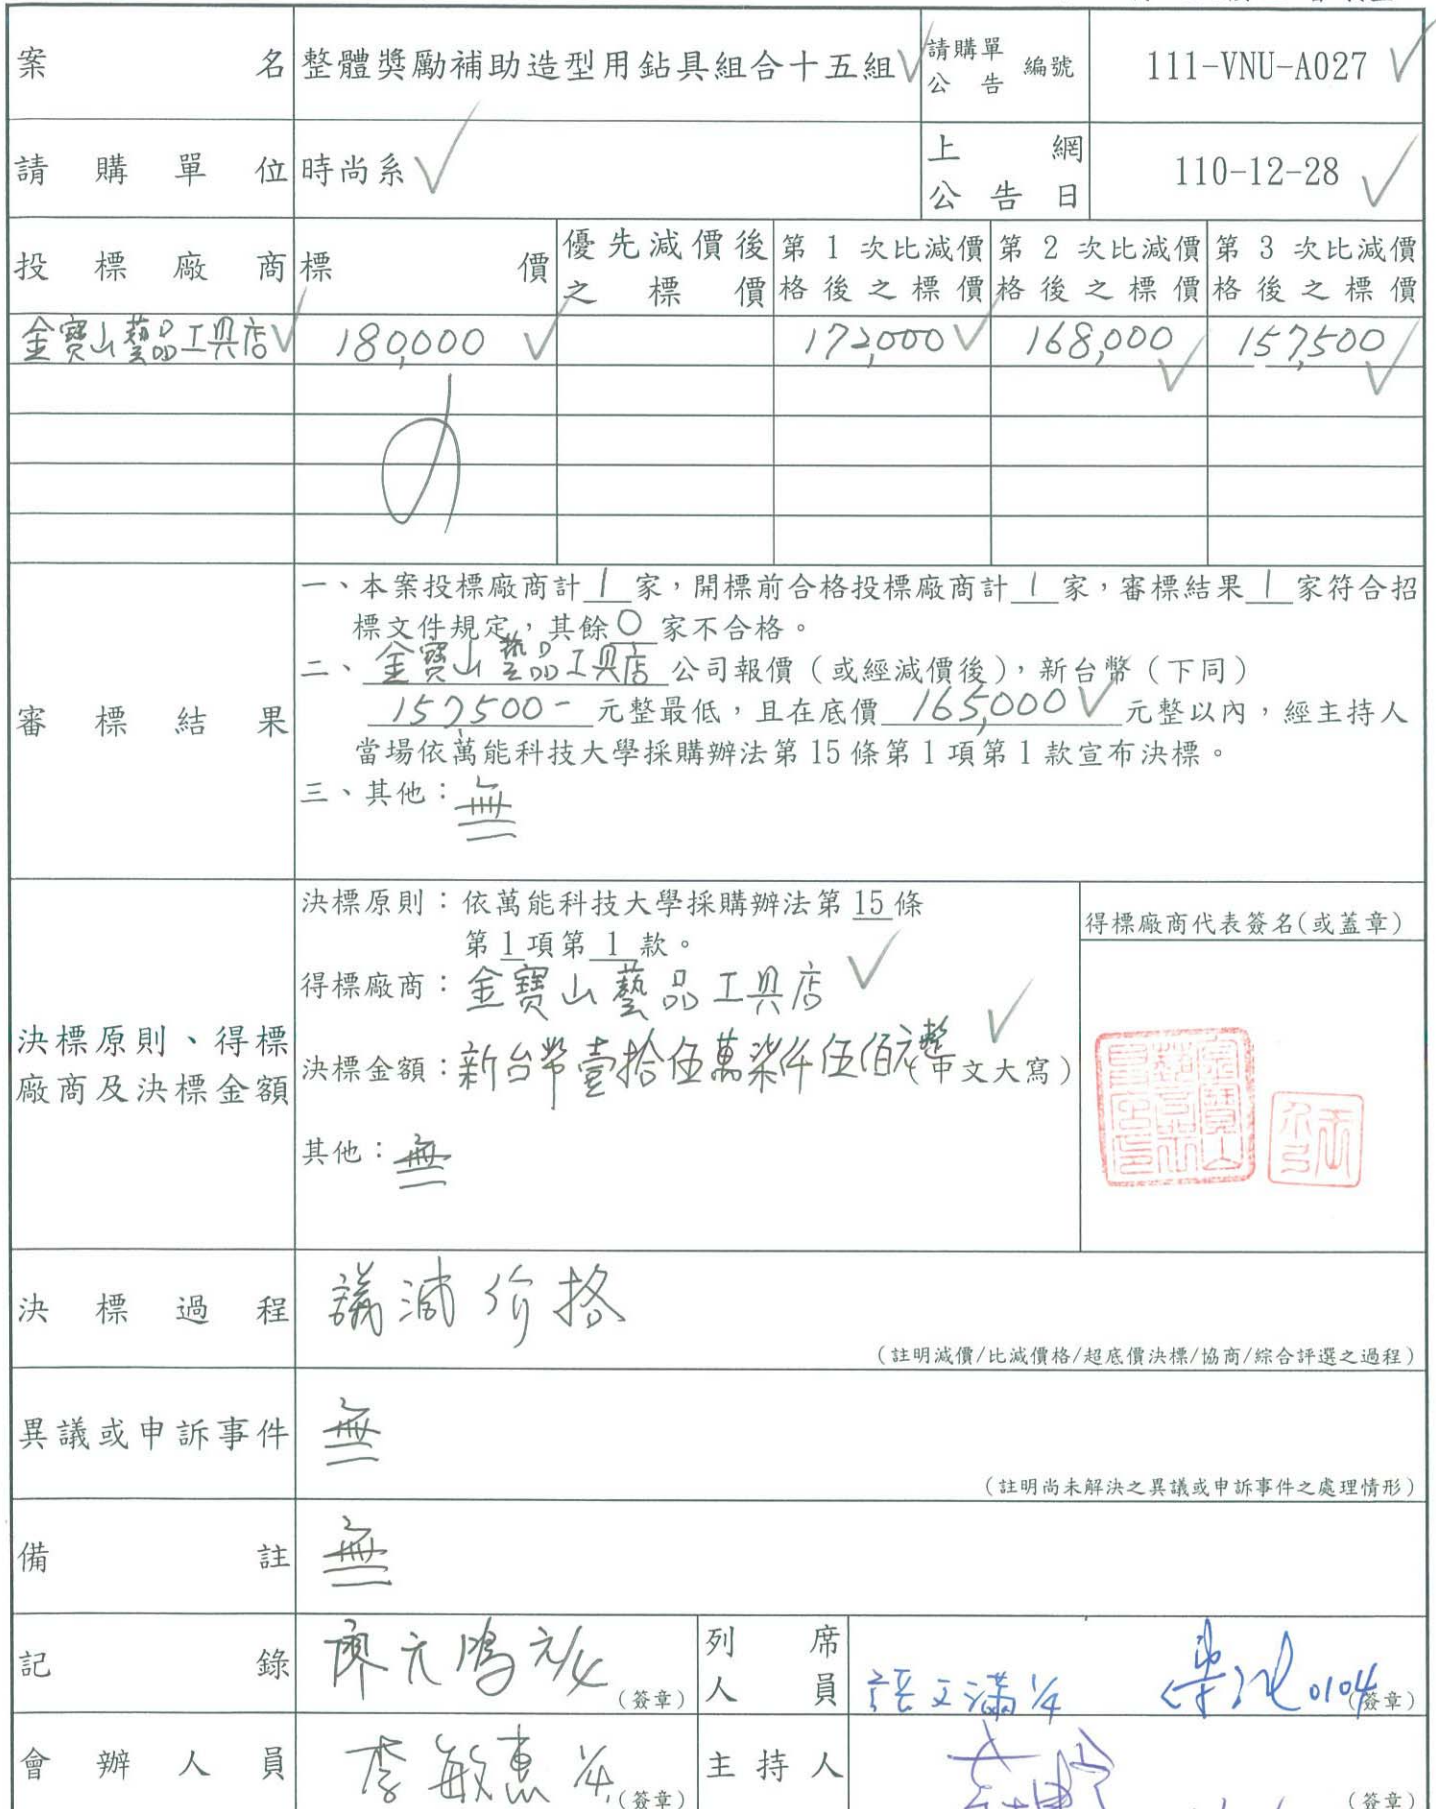 案名 整體獎勵補助造型用鉆具組合十五組 請購單公告 編號 111-VNU-A027
請購單位 時尚系 上網公告日 110-12-28
投標廠商 標價 優先減價後之標價 第1次比減價格後之標價 第2次比減價格後之標價 第3次比減價格後之標價
金寶山藝品工具店 180,000 172,000 168,000 157,500
審標結果
一、本案投標廠商計 1 家，開標前合格投標廠商計 1 家，審標結果 1 家符合招
標文件規定，其餘 0 家不合格。
二、金寶山藝品工具店 公司報價（或經減價後），新台幣（下同）
157500- 元整最低，且在底價 165,000 元整以內，經主持人
當場依萬能科技大學採購辦法第15條第1項第1款宣布決標。
三、其他：無
決標原則、得標
廠商及決標金額
決標原則：依萬能科技大學採購辦法第 15 條
第 1 項第 1 款。
得標廠商：金寶山藝品工具店
決標金額：新台幣壹拾伍萬柒仟伍佰元整（中文大寫）
其他：無
得標廠商代表簽名(或蓋章)
決標過程 議減价格
（註明減價/比減價格/超底價決標/協商/綜合評選之過程）
異議或申訴事件 無
（註明尚未解決之異議或申訴事件之處理情形）
備註 無
記錄 廖元鴻 1/4 （簽章） 列席人員 張文滿 1/4 0104 （簽章）
會辦人員 李敏惠 1/4 （簽章） 主持人 （簽章）